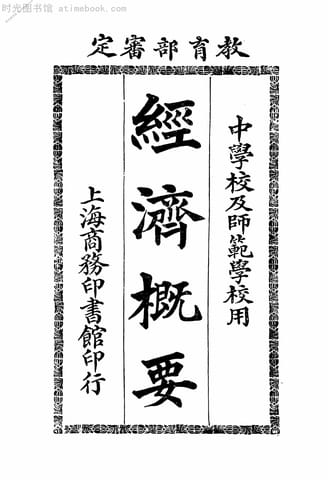 时光图书馆 atimebook.com
教育部審定
中學校及師範學校用
經濟概要
上海商務印書館印行